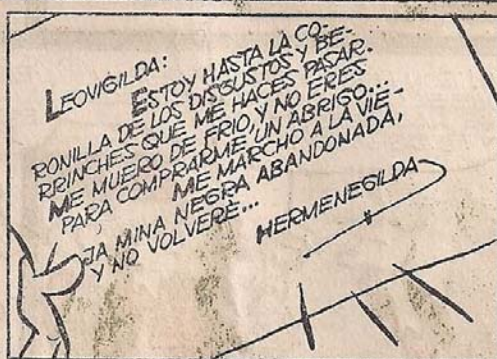 LEOVIGILDA:
ESTOY HASTA LA CO-
RONILLA DE LOS DISGUSTOS Y BE-
RRINCHES QUE ME HACES PASAR.
ME MUERO DE FRIO, Y NO ERES
PARA COMPRARME UN ABRIGO...
ME MARCHO A LA VIE-
JA MINA NEGRA ABANDONADA,
Y NO VOLVERÉ...
HERMENEGILDA